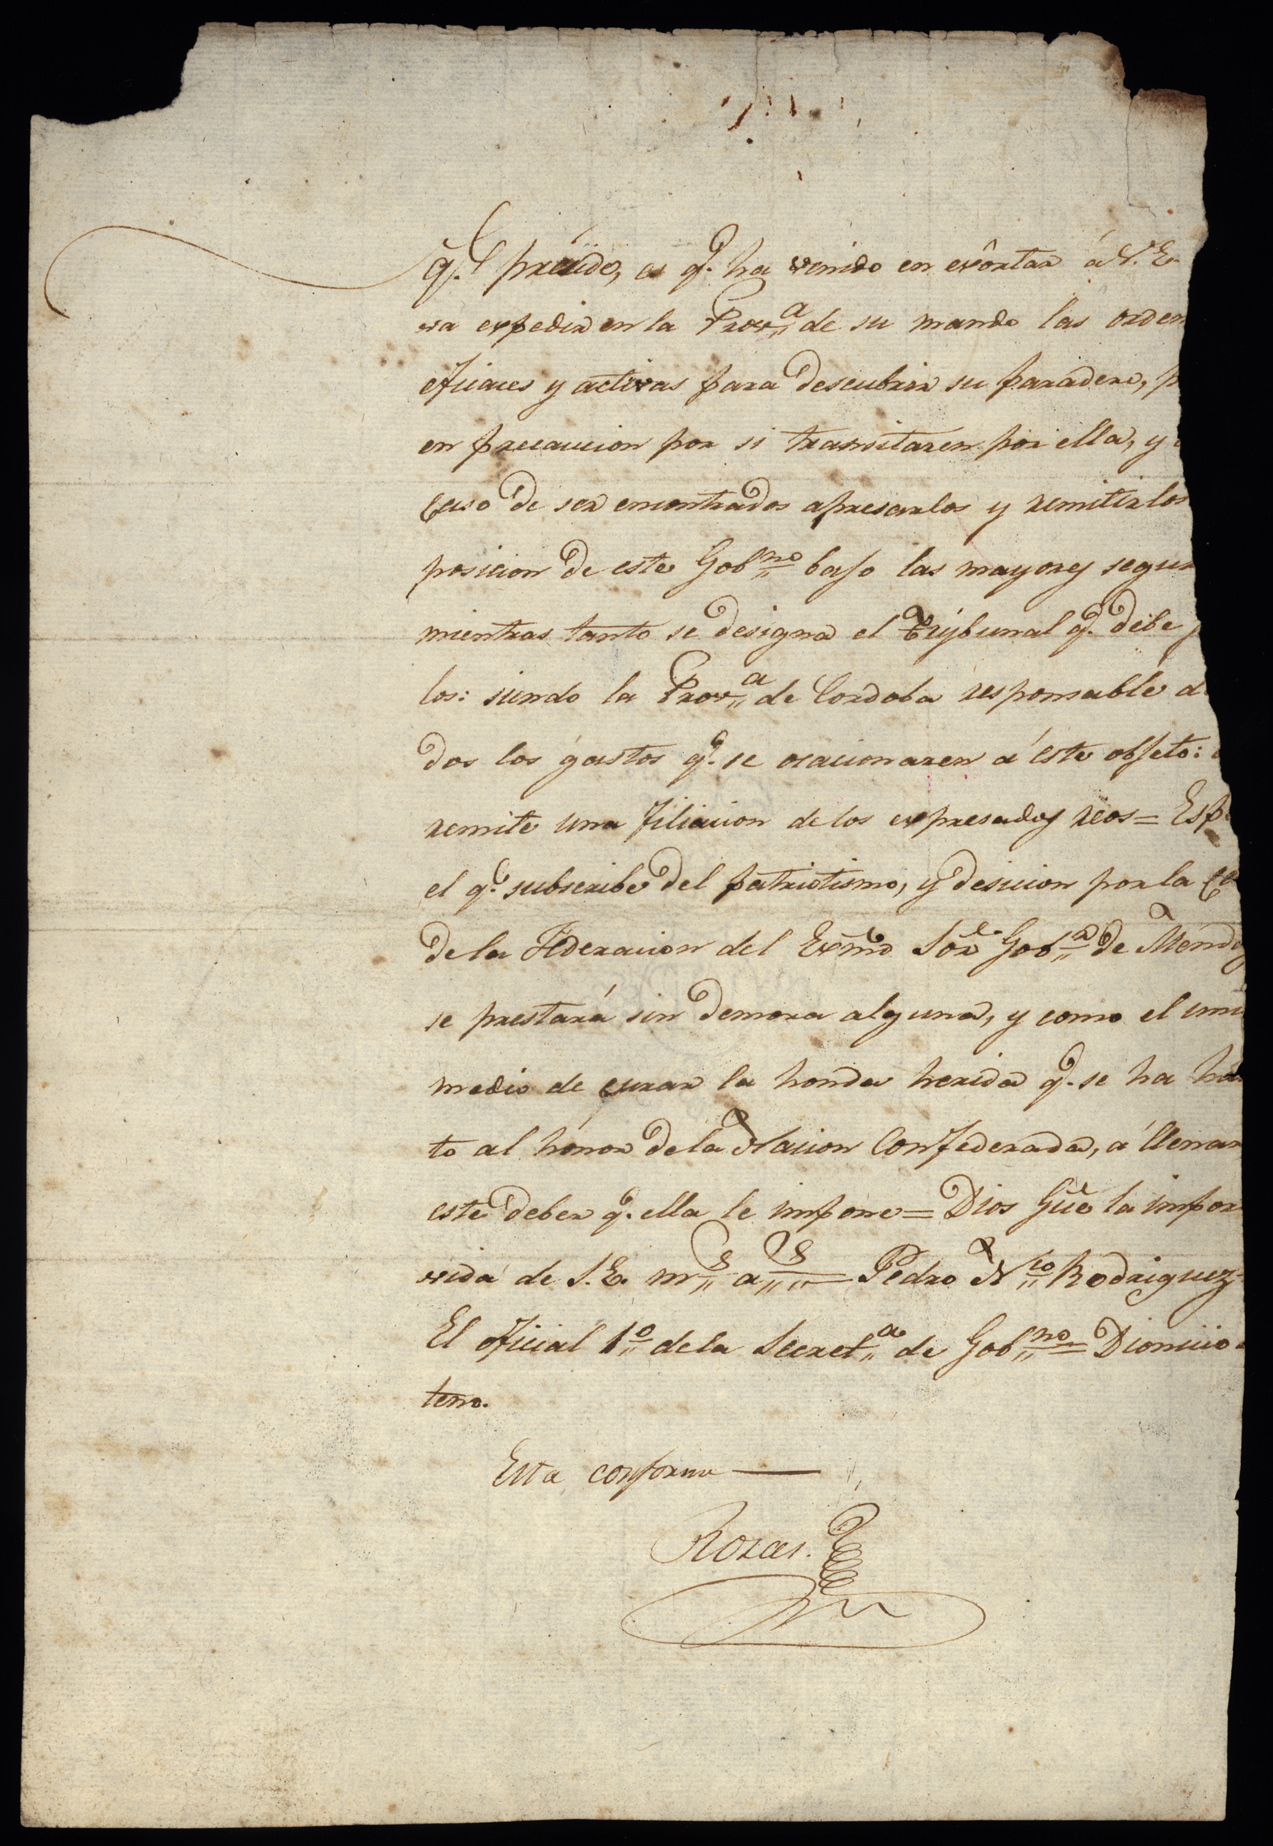 q.ᵉ preside, es q.ᵉ ha venido en exôrtar á V. E.
va expedir en la Prov.ᵃ de su mando las orden
eficaces y activas para descubrir su paradero, p
en precaucion por si transitaren por ella, y
caso de ser encontrados apresarlos y remitirlos
posicion de este Gob.ⁿᵒ bajo las mayores segur
mientras tanto se designa el Tribunal q.ᵉ debe
los: siendo la Prov.ᵃ de Cordoba responsable d
dos los gastos q.ᵉ se ocacionaren á este objeto:
remite una filiacion de los expresados reos = Esp
el q.ᵉ subscribe del patriotismo, y desicion por la Ca
de la Federacion del Exmõ Sor Gob.ʳ de Mendoz
se prestará sin demora alguna, y como el uni
medio de curar la honda herida q.ᵉ se ha hã
to al honor de la Nacion Confederada, á llenar
este deber q.ᵉ ella le impone = Dios Gũe la impor
vida de S. E. m.ˢ a.ˢ = Pedro N.ᶜᵒ Rodriguez =
El oficial 1.º de la Secret.ᵃ de Gob.ⁿᵒ = Dionicio
teno.
Esta conforme —
Rozas.